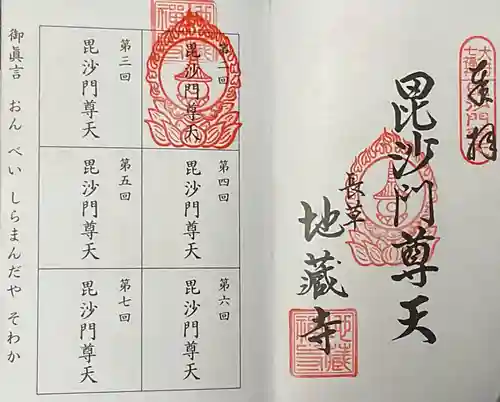 奉拝
毘沙門尊天
長草
地蔵寺
第二回
毘沙門尊天
第四回
毘沙門尊天
第六回
毘沙門尊天
第三回
毘沙門尊天
第五回
毘沙門尊天
第七回
毘沙門尊天
御眞言 おん べい しらまんだや そわか